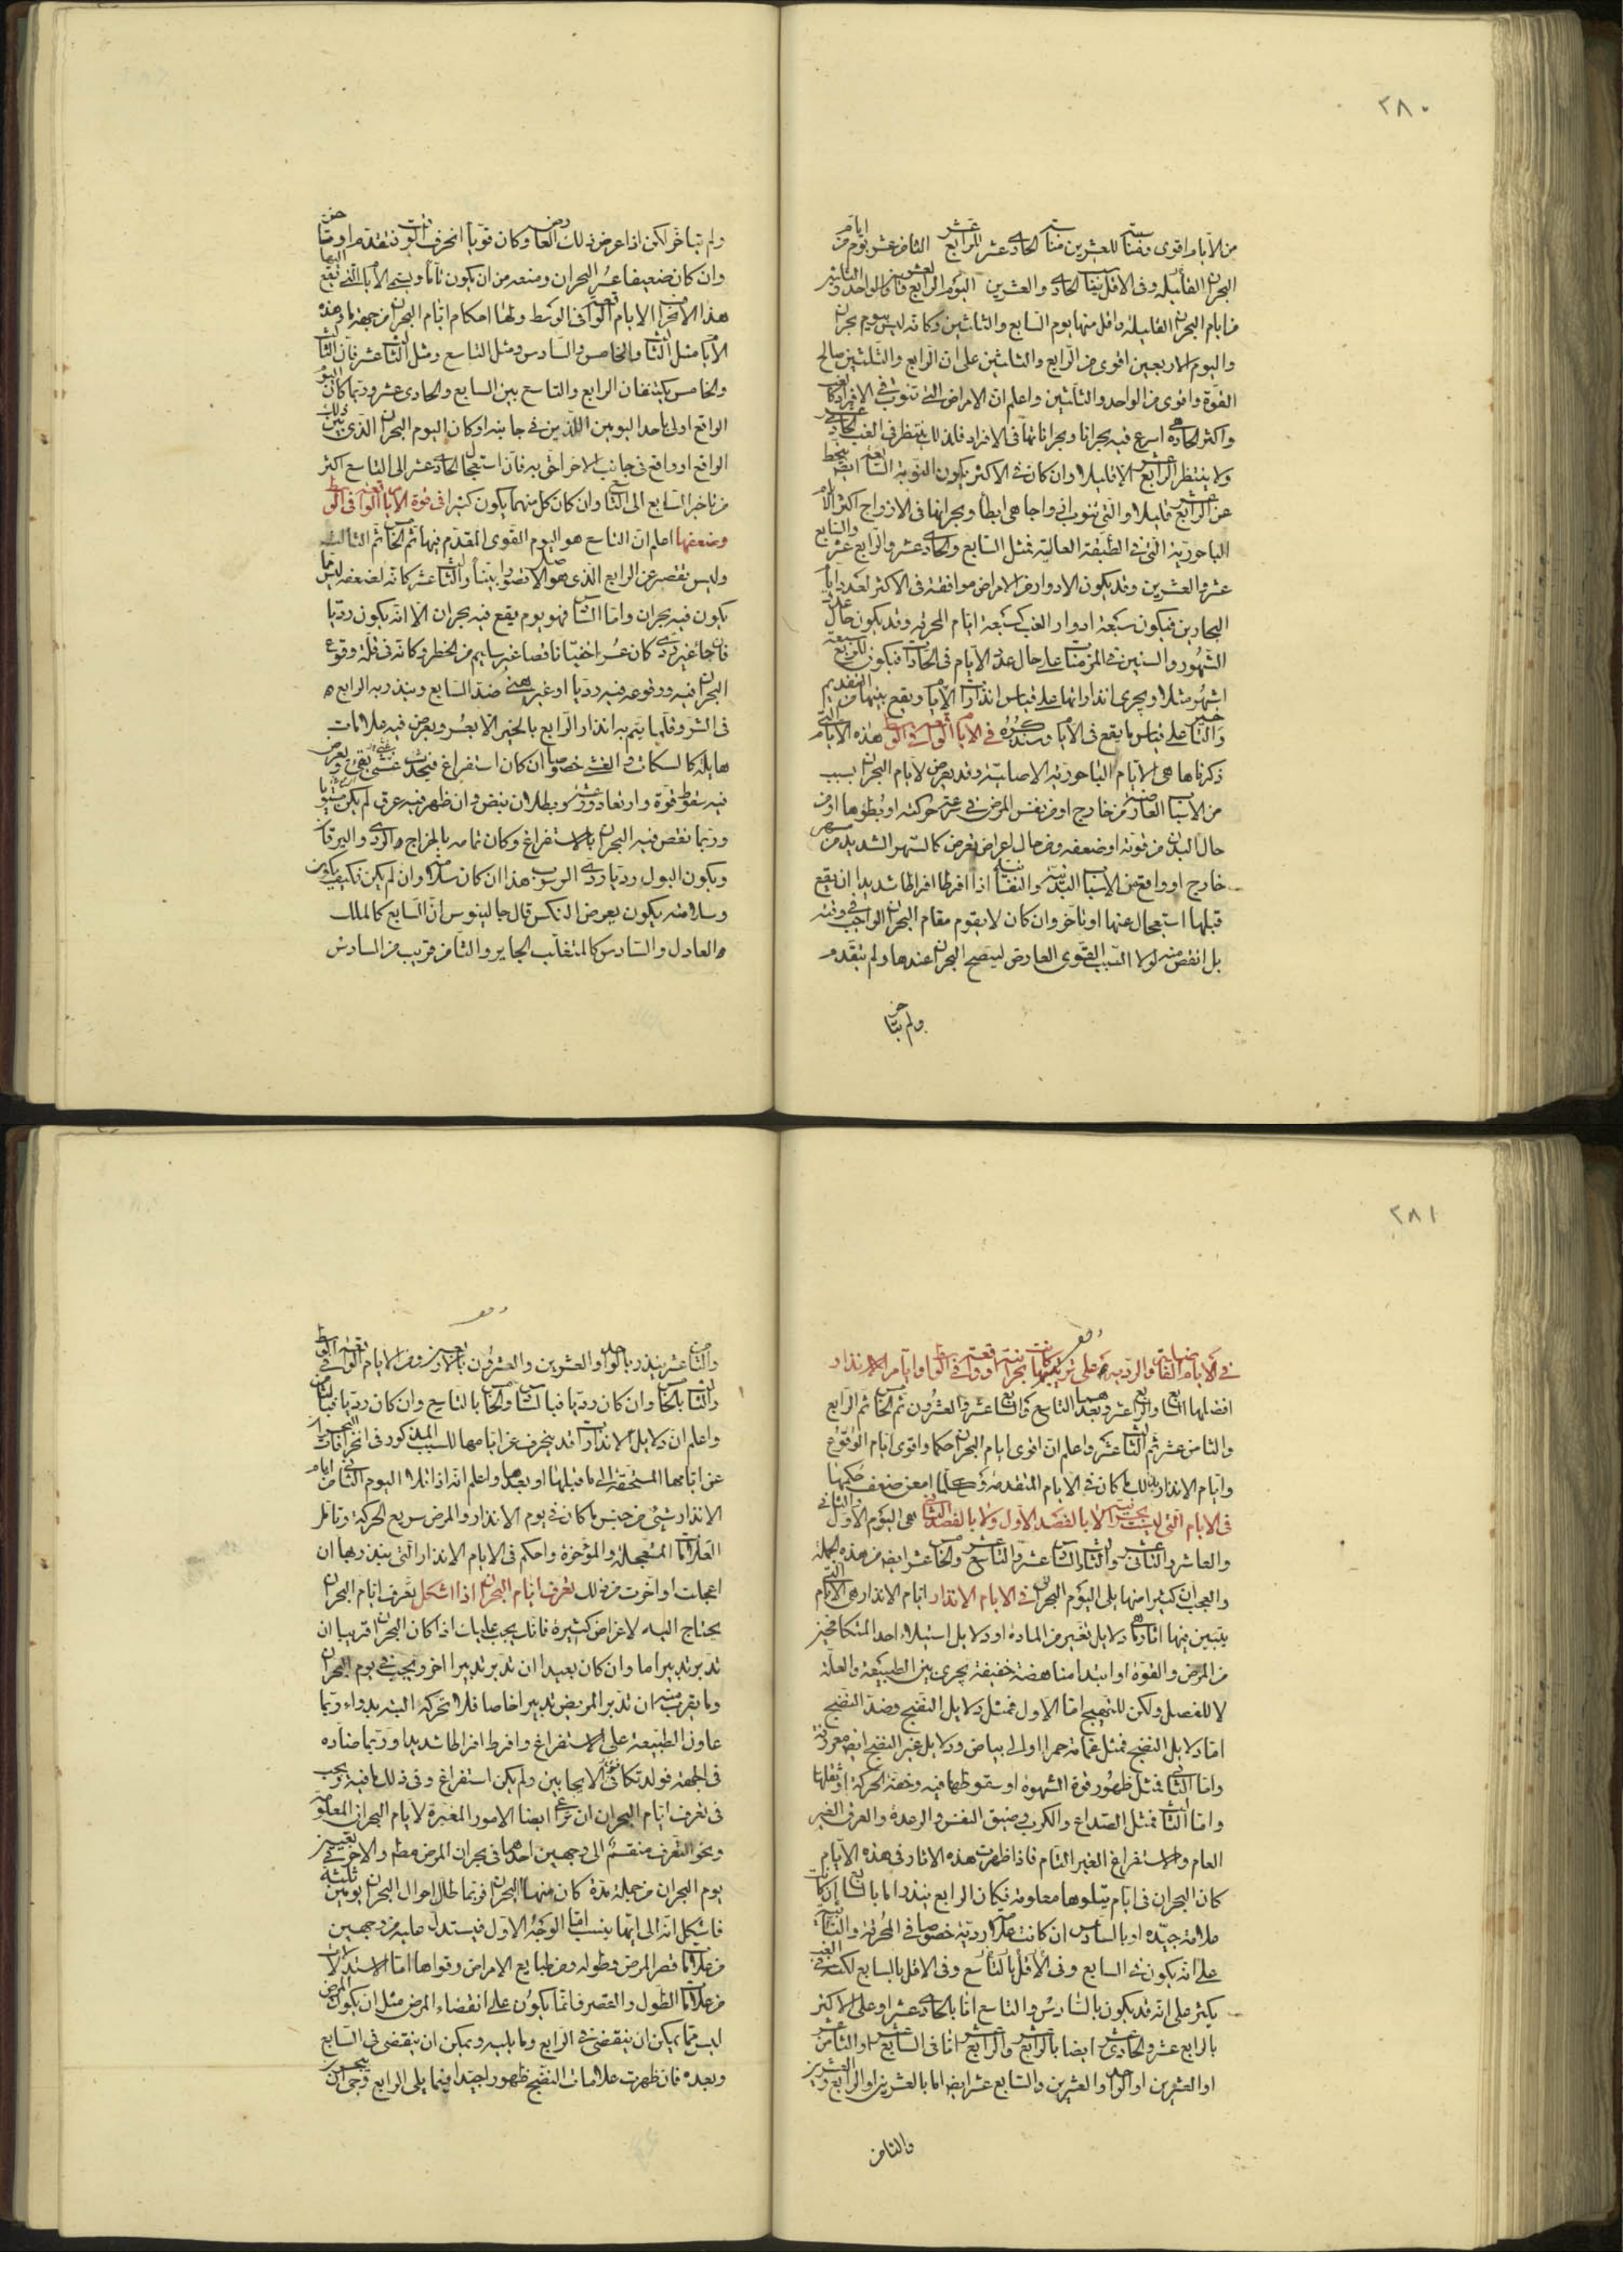 ٢٨٠
من الايام اقوى ومناسبته للعشرين مناسبة الحادى عشر للرابع عشر الثامن عشر يوم من ايام
البحران القليله وفى الاقل يتفق الحادى والعشرين اليوم الرابع والعشرون والواحد والثلثون
من ايام البحران القليلة واقل منها يوم السابع والثلثين وكانه ليس يوم بحران
واليوم الاربعين اقوى من الرابع والثلثين على ان الرابع والثلثين صالح
القوة واقوى من الواحد والثلثين واعلم ان الامراض التى تنوب فى الافراد كالغب
واكثر الحادة هى اسرع فيه بحرانا وبحراناتها فى الافراد فلذلك ينتظر فى الغب الحادى عشر
ولا ينتظر الرابع عشر الا قليلا وان كان فى الاكثر يكون النوبة السابعة ايضا ينحط
عن الرابع عشر قليلا والتى تنوب ازواجا هى ابطأ وبحرانها فى الازواج اكثر الايام
الباحورية التى فى الطبقة العالية مثل السابع والحادى عشر والرابع عشر والسابع
عشر والعشرين وقد يكون الادوار من الامراض موافقة فى الاكثر لعدد ايام
البحارين فيكون سبعة ادوار الغب كسبعة ايام المحرقة وقد يكون حال عدد
الشهور والسنين فى المزمنات على حال عدد الايام فى الحادات فيكون للربع سبعة
اشهر مثلا ويجرى انذاراتها على قياس انذارات الايام ويقع بينهما من التقديم
والتأخير على قياس ما يقع فى الايام وسنذكره فى الايام الواقعة فى الوسط هذه الايام التى
ذكرناها هى الايام الباحورية الاصلية وقد يعرض لايام البحران بسبب
من الاسباب العارضة من خارج او من نفس المرض فى سرعة حركته او بطوها او من
حال البدن من قوته او ضعفه ومن حال اعراض تعرض كالسهر الشديد من سهر
خارج او واقع من الاسباب البدنية والنفسانية اذا افرطا افراطا شديدا ان يقع
قبلها استعجال عنها او تأخر وان كان لا يقوم مقام البحران الواجب فى وقته
بل انقص منه لولا السبب القوى العارض ليتضح البحران عندها ولم يتقدم
ولم يتاخر
ولم يتاخر لكن اذا عرض ذلك العارض وكان قويا انحرف الوقت فتقدم او تاخر
وان كان ضعيفا عسر البحران ومنعه من ان يكون تاما ويسمى الايام التى تقع اليها
هذا الانحراف الايام الواقعة فى الوسط ولها احكام ايام البحران من جهة ما وهذه
الايام مثل الثالث والخامس والسادس ومثل التاسع ومثل الثالث عشر فان الثالث
والخامس يكتنفان الرابع والتاسع بين السابع والحادى عشر وربما كان اليوم
الواقع اولى باحد اليومين اللذين فى جانبيه او كان اليوم البحران الذى بين ذلك
الواقع او واقع فى جانب الاخر احق به فان استعجال الحادى عشر الى التاسع اكثر
من تاخر السابع الى التاسع وان كان كل منهما يكون كثيرا فى قوة الايام الواقعة فى الوسط
وضعفها اعلم ان التاسع هو اليوم القوى المقدم فيها ثم الخامس ثم الثالث
وليس تقصر عن الرابع الذى هو الاصل قصورا بينا والثالث عشر كانه لضعفه ليس مما
يكون فيه بحران واما السادس فهو يوم يقع فيه بحران الا انه يكون رديا
فان جاء غير ردى كان عسرا خفيا ناقصا غير سليم من الخطر وكانه فى قلة وقوع
البحران فيه ووقوعه فيه رديا او غير هنى ضد السابع وينذر به الرابع
فى الشر وقلما يتم به انذار الرابع بالخير الا بعسر ويعرض فيه علامات
هايلة كالسكات والغشى خصوصا ان كان استفراغ فيحدث غشى بقى ويعرض
فيه سقوط قوة وارتعاد ورعشة وبطلان نبض وان ظهر فيه عرق لم يكن مستويا
وربما نقص فيه البحران بالاستفراغ وكان تمامه بالخراج الردى واليرقان
ويكون البول رديا ردى الرسوب هذا ان كان سلامة وان لم يكن فكيف يكون
وسلامته يكون يعرض النكس قال جالينوس ان السابع كالملك
العادل والسادس كالمتغلب الجاير والثامن قريب من السادس
٢٨١
فى الايام الفاضلة والردية على ترتيبها بحرانية كانت او واقعة فى الوسط او ايام الانذار
افضلها السابع والرابع عشر وبعدهما التاسع والسابع عشر والعشرون ثم الخامس ثم الرابع
والثامن عشر ثم الثالث عشر واعلم ان اقوى ايام البحران حكما واقوى ايام الوقوع
وايام الانذار بذلك ما كان فى الايام المتقدمة وكلما امعن ضعف حكمها
فى الايام التى ليست بحرانية لا بالقصد الاول ولا بالقصد الثانى هى اليوم الاول والثانى
والعاشر والثانى عشر والسادس عشر والتاسع عشر والخامس عشر ايضا من هذه الجملة
والعجب ان كثيرا منها يلى اليوم البحران فى الايام الانذار ايام الانذار هى الايام التى
يتبين فيها اثار ما هى دلايل تغير من المادة او دلايل استيلاء احد المتكافحين
من المرض والقوة او ابتدا مناهضة خفيفة يجرى بين الطبيعة والعلة
لا للفصل ولكن للتهييج اما الاول فمثل دلايل النضج وضد النضج
اما دلايل النضج فمثل غمامة حمرا او الى بياض ودلايل غير النضج ايضا معروفة
واما الثانى فمثل ظهور قوة الشهوة او سقوطها فيه وخفة الحركة او ثقلها
واما الثالث فمثل الصداع والكرب وضيق النفس والرعدة والعرق الغير
العام والاستفراغ الغير التام فاذا ظهرت هذه الاثار فى هذه الايام
كان البحران فى ايام يتلوها معلومة فكان الرابع ينذر اما بالسابع ان كانت
علامة جيدة او بالسادس ان كانت علامة ردية خصوصا فى المحرقة والنايبة
على انه يكون فى السابع وفى الاقل بالتاسع وفى الاقل بالسابع لكنه فى الغب
يكثر على انه قد يكون بالسادس والتاسع اما بالحادى عشر او على الاكثر
بالرابع عشر والحادى عشر ايضا بالرابع عشر والرابع عشر اما فى السابع عشر او الثامن عشر
او العشرين او الواحد والعشرين والسابع عشر ايضا اما بالعشرين او الرابع والعشرين
والثامن
والثامن عشر ينذر بالواحد والعشرين والعشرون بالاربعين ومن الايام الواقعة فى الوسط
والثالث بالخامس وان كان رديا فبالسادس والخامس بالتاسع وان كان رديا فبالثامن
واعلم ان دلايل الانذارات قد ينحرف عن ايامها للسبب المذكور فى انحرافات البحران
عن ايامها المستحقة الى ما قبلها او بعدها واعلم انه اذا تلا اليوم الثانى من ايام
الانذار شئ من جنس ما كان فى يوم الانذار والمرض سريع الحركة وتامل
العلامات المستعجلة والمؤخرة واحكم فى الايام الانذار التى ينذر بها ان
اعجلت او اخرت من ذلك تعرف ايام البحران اذا اشكل تعرف ايام البحران
يحتاج اليه لاغراض كثيرة فانك يجب عليك اذا كان البحران قريبا ان
تدبر تدبيرا ما وان كان بعيدا ان تدبر تدبيرا اخر ويجب فى يوم البحران
وما يقرب منه ان تدبر المريض تدبيرا خاصا فلا تحركه البتة بدواء وربما
عاون الطبيعة على الاستفراغ وافرط افراطا شديدا وربما ضاده
فى الجهة فولد تكافى الايجابين ولم يكن استفراغ وفى ذلك ما فيه ويجب
فى تعرف ايام البحران ان تراعى ايضا الامور المغيرة لايام البحران المعلومة
ونحو التعرف منقسم الى وجهين احدهما فى بحران المرض مطلقا والاخر فى تعيين
يوم البحران من جملة مدة كان فيها البحران فربما طال احوال البحران يومين ثلثة
فاشكل انه الى ايها ينسب اما الوجه الاول فيستدل عليه من وجهين
من علامات قصر المرض وطوله ومن طبايع الامراض وقواها اما الاستدلالات
من علامات الطول والقصر فانما يكون على انقضاء المرض مثل ان يكون المرض
ليس مما يمكن ان ينقضى فى الرابع وما يليه ويمكن ان ينقضى فى السابع
وبعده فان ظهرت علامات النضج ظهورا جيدا فيما يلى الرابع